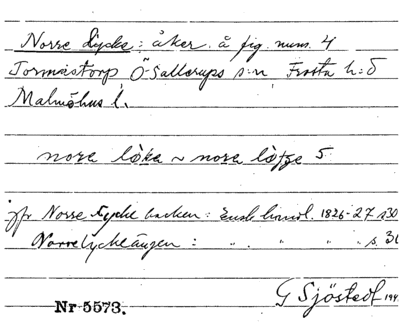 Norre Lycke: åker å fig. num. 4
Tormastorp Ö. Sallerups s:n Frosta h:d
Malmöhus l.
nora løka ~ nora 5
jfr Norre Lycke backen: Ensk. 1826-27 s. 30
Norrelyckeängen: " " " s. 30
G Sjöstedt 194
Nr 5573.